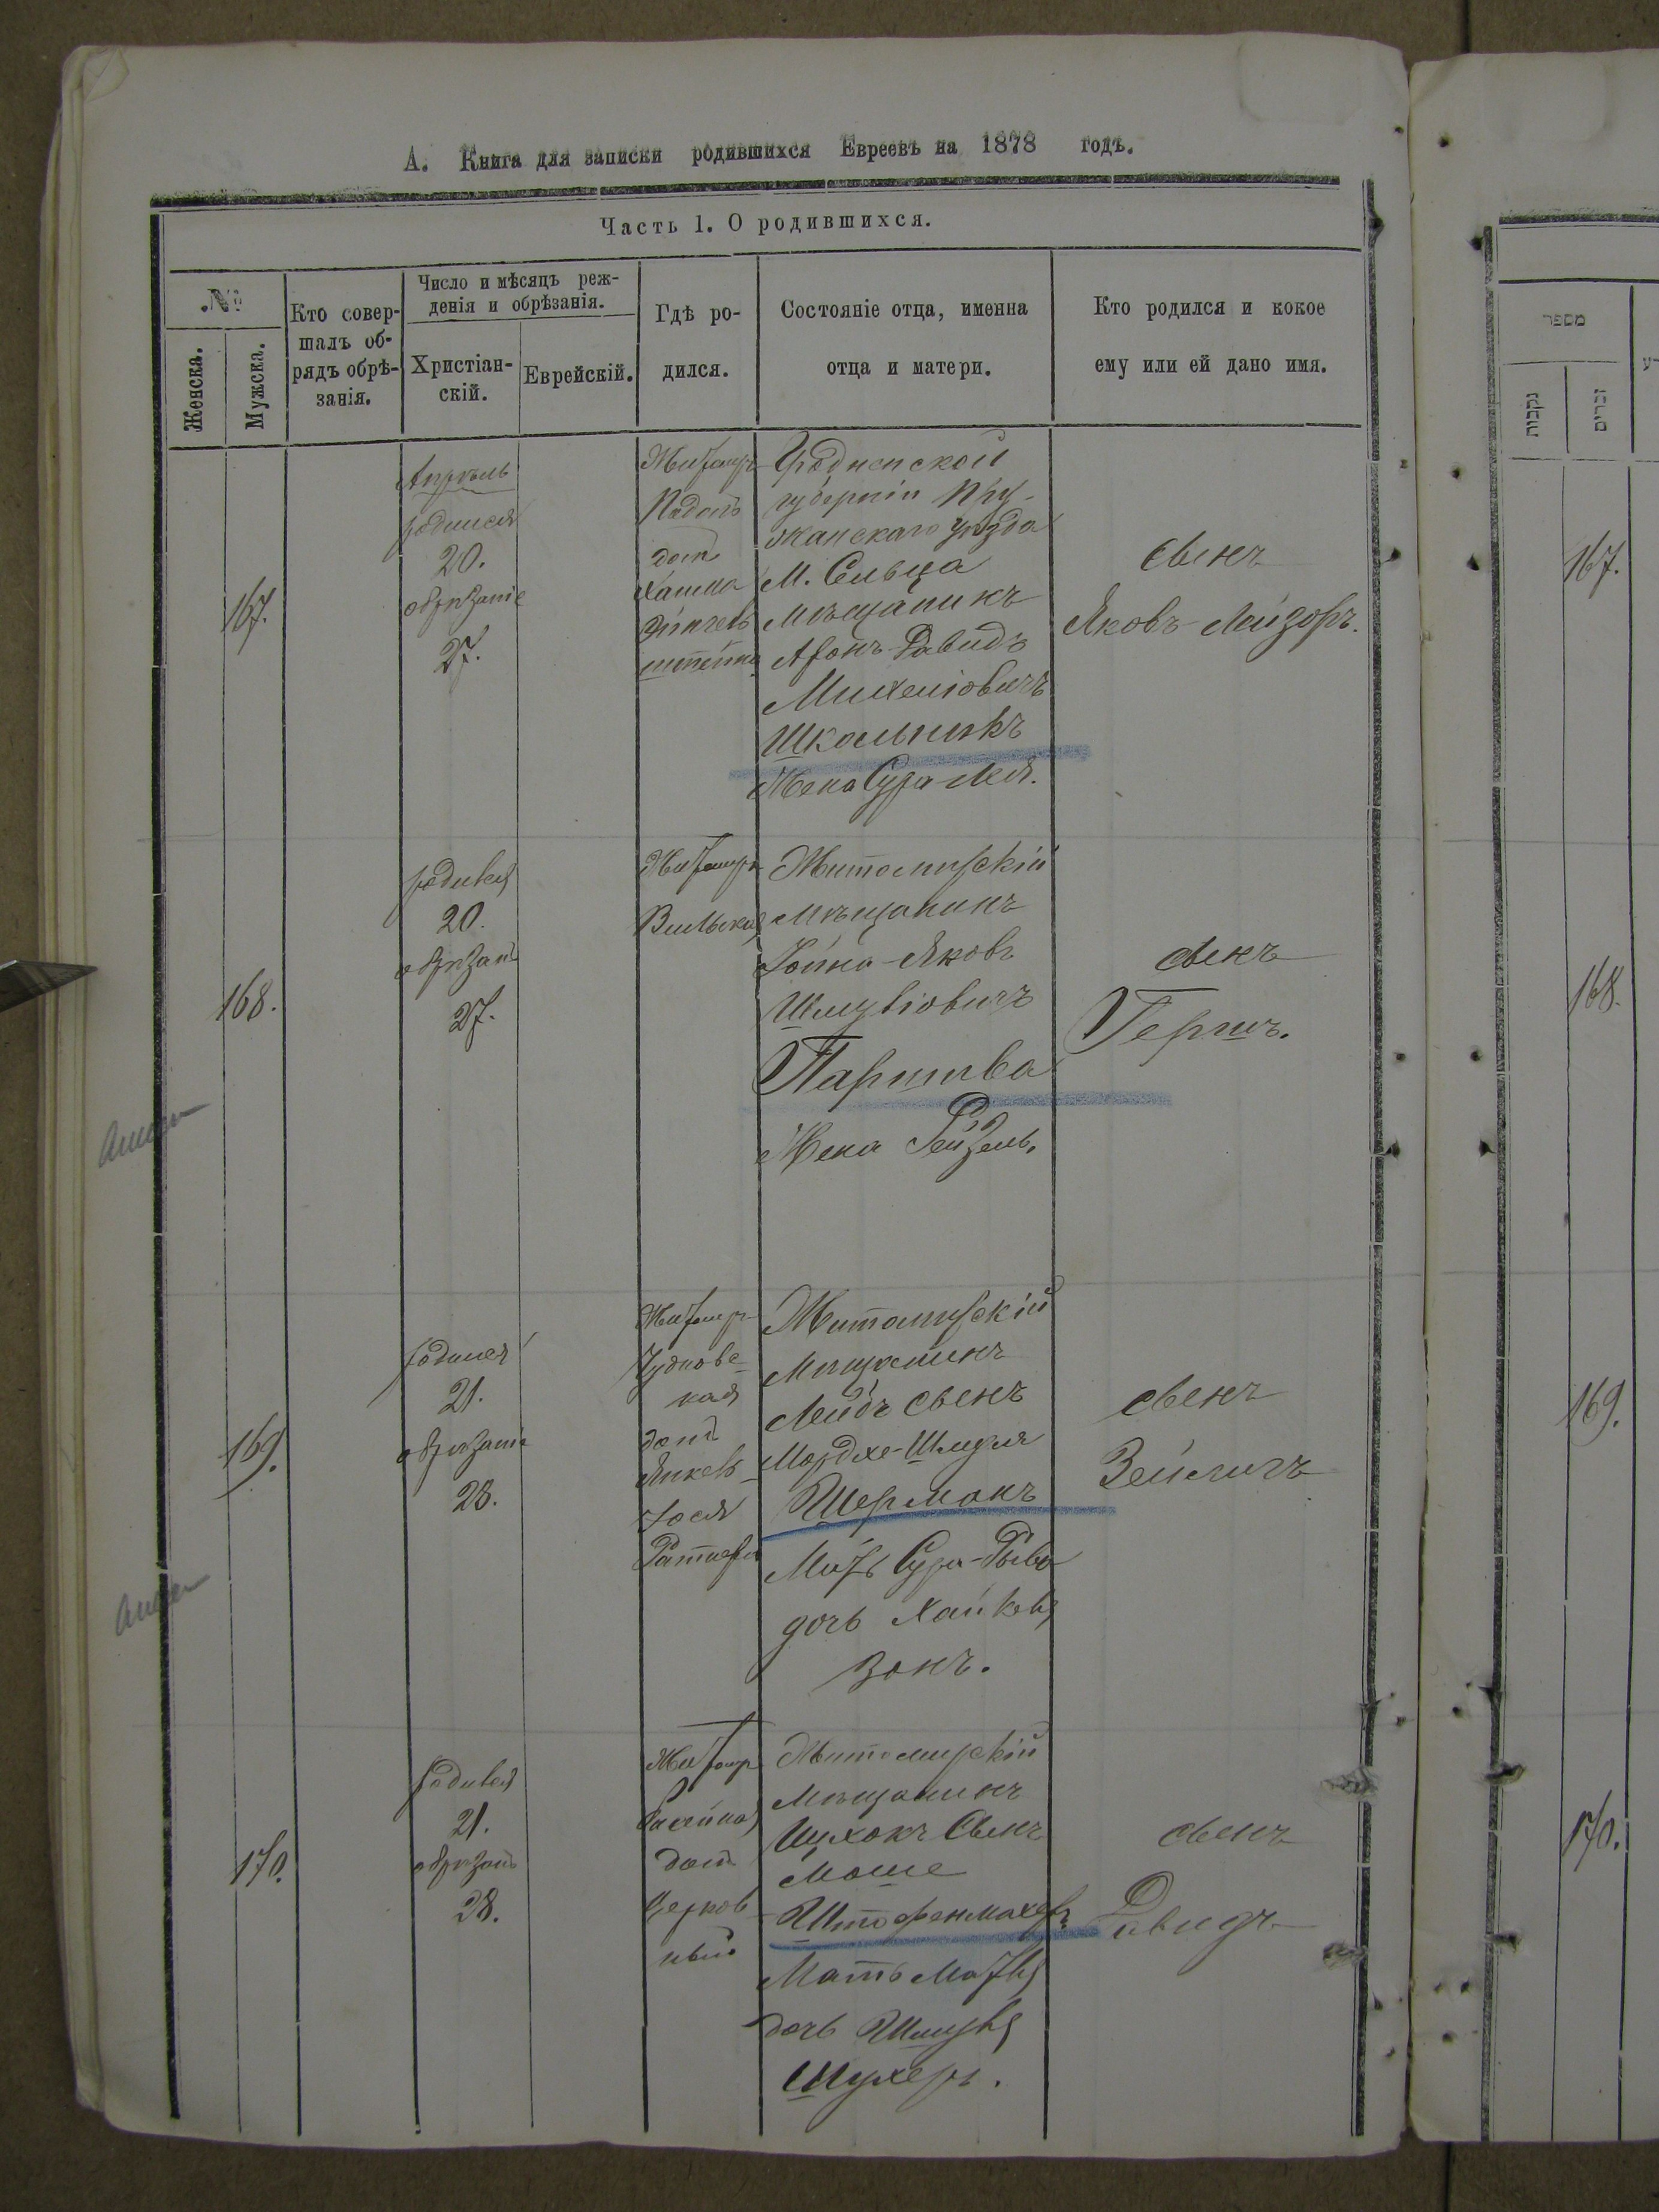 А. Книга для записки родившихся Евреевъ на 1878 годъ.
Часть 1. О родившихся.
№
Женска.
Мужска.
Кто совер-
шалъ об-
рядъ обрѣ-
занія.
Число и мѣсяцъ реж-
денія и обрѣзанія.
Христіан-
скій.
Еврейскій.
Гдѣ ро-
дился.
Состояніе отца, именна
отца и матери.
Кто родился и кокое
ему или ей дано имя.
167.
Апрѣль
родился
20.
обрѣзаніе
27.
Житомръ
домъ
Гродненской
губерніи Пру-
жанскаго уѣзда
М. Сельца
Мѣщанинъ
Аронъ-Давидъ
Михеліовичъ
Школьникъ
Жена Сура-Лея.
сынъ
Яковъ-Лейзоръ.
168.
родився
20.
обрѣзанъ
27.
Житомръ
Вильская
Житомирскій
Мѣщанинъ
Іойна-Яковъ
Шмуліовичъ
Паршива
Жена Рейзель.
сынъ
Гершъ.
169.
родился
21.
обрѣзаніе
28.
Житомръ
Чуднове-
кая
домъ
Янкель
Іося
Ратнера
Житомирскій
Мѣщанинъ
Лейбъ сынъ
Мордхе-Шмуля
Шерманъ
Мать Сура-Рыва
дочь Хайкеля
Зонъ.
сынъ
Зейлигъ
170.
родився
21.
обрѣзанъ
28.
Житомр
домъ
Церков-
ный
Житомирскій
Мѣщанинъ
Ицхокъ Сынъ
Моше
Штофенмахеръ
Мать Маля
дочь Шмуля
Шухеръ.
сынъ
Давидъ
מספר
נקבות
זכרים
167.
168.
169.
170.